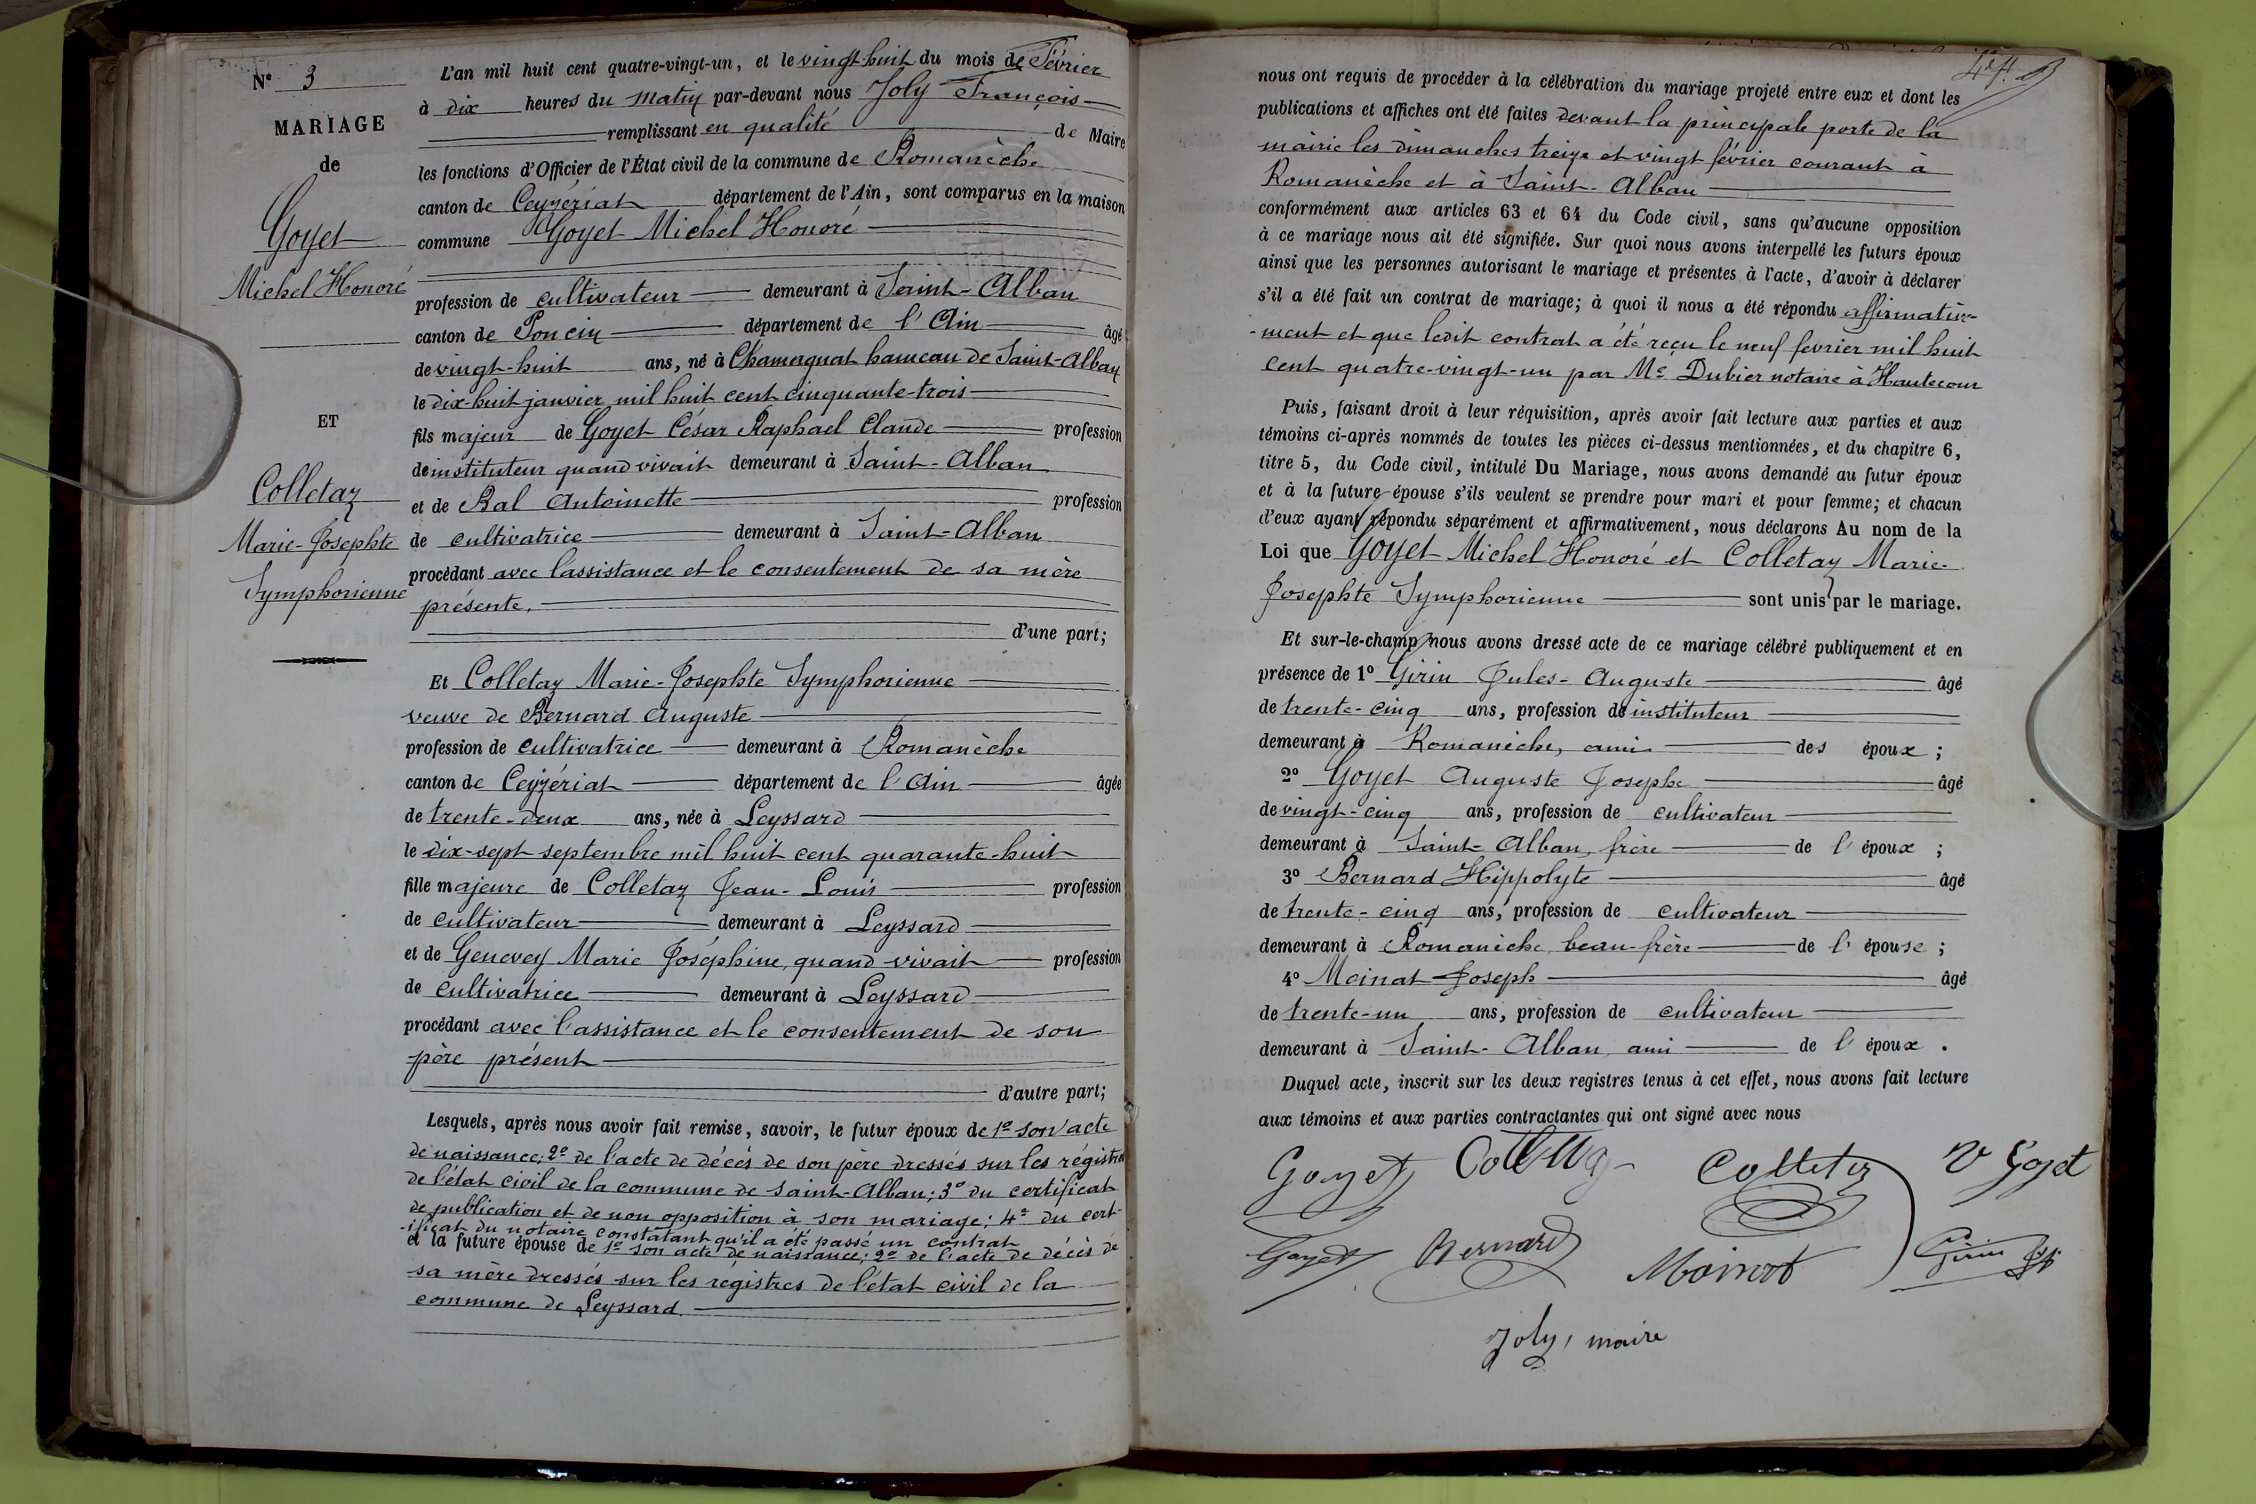 N° 3
MARIAGE
de
Goyet
Michel Honoré
ET
Colletaz
Marie-Josephte
Symphorienne
L'an mil huit cent quatre-vingt-un, et le vingt-huit du mois de Février
à dix heures du matin par-devant nous Joly François
remplissant en qualité de Maire
les fonctions d'Officier de l'État civil de la commune de Romanèche
canton de Ceyzériat département de l'Ain, sont comparus en la maison
commune Goyet Michel Honoré
profession de cultivateur demeurant à Saint-Alban
canton de Poncin département de l'Ain âgé
de vingt-huit ans, né à Chamagnat hameau de Saint-Alban
le dix-huit janvier mil huit cent cinquante-trois
fils majeur de Goyet César Raphael Claude profession
de instituteur quand vivait demeurant à Saint-Alban
et de Ral Antoinette profession
de cultivatrice demeurant à Saint-Alban
procédant avec l'assistance et le consentement de sa mère
présente.
d'une part;
Et Colletaz Marie-Josephte Symphorienne
veuve de Bernard Auguste
profession de cultivatrice demeurant à Romanèche
canton de Ceyzériat département de l'Ain âgée
de trente-deux ans, née à Leyssard
le dix-sept septembre mil huit cent quarante-huit
fille majeure de Colletaz Jean-Louis profession
de cultivateur demeurant à Leyssard
et de Genevey Marie Joséphine, quand vivait profession
de cultivatrice demeurant à Leyssard
procédant avec l'assistance et le consentement de son
père présent
d'autre part;
Lesquels, après nous avoir fait remise, savoir, le futur époux de 1° son acte
de naissance; 2° de l'acte de décès de son père dressés sur les régistres
de l'état civil de la commune de Saint-Alban; 3° du certificat
de publication et de non opposition à son mariage; 4° du cert-
-ificat du notaire constatant qu'il a été passé un contrat
et la future épouse de 1° son acte de naissance; 2° de l'acte de décès de
sa mère dressés sur les régistres de l'état civil de la
commune de Leyssard.
nous ont requis de procéder à la célébration du mariage projeté entre eux et dont les
publications et affiches ont été faites devant la principale porte de la
mairie les dimanches treize et vingt février courant à
Romanèche et à Saint-Alban
conformément aux articles 63 et 64 du Code civil, sans qu'aucune opposition
à ce mariage nous ait été signifiée. Sur quoi nous avons interpellé les futurs époux
ainsi que les personnes autorisant le mariage et présentes à l'acte, d'avoir à déclarer
s'il a été fait un contrat de mariage; à quoi il nous a été répondu affirmative-
-ment et que ledit contrat a été reçu le neuf février mil huit
cent quatre-vingt-un par Me Dubier notaire à Hautecour
Puis, faisant droit à leur réquisition, après avoir fait lecture aux parties et aux
témoins ci-après nommés de toutes les pièces ci-dessus mentionnées, et du chapitre 6,
titre 5, du Code civil, intitulé Du Mariage, nous avons demandé au futur époux
et à la future épouse s'ils veulent se prendre pour mari et pour femme; et chacun
d'eux ayant répondu séparément et affirmativement, nous déclarons Au nom de la
Loi que Goyet Michel Honoré et Colletaz Marie-
Josephte Symphorienne sont unis par le mariage.
Et sur-le-champ nous avons dressé acte de ce mariage célébré publiquement et en
présence de 1° Girin Jules-Auguste âgé
de trente-cinq ans, profession de instituteur
demeurant à Romanèche, ami des époux;
2° Goyet Auguste Josephe âgé
de vingt-cinq ans, profession de cultivateur
demeurant à Saint-Alban, frère de l'époux;
3° Bernard Hippolyte âgé
de trente-cinq ans, profession de cultivateur
demeurant à Romanèche beau-frère de l'épouse;
4° Moinat Joseph âgé
de trente-un ans, profession de cultivateur
demeurant à Saint-Alban ami de l'époux.
Duquel acte, inscrit sur les deux registres tenus à cet effet, nous avons fait lecture
aux témoins et aux parties contractantes qui ont signé avec nous
Goyet Colletaz Colletaz Ve Goyet
Goyet Bernard Moinat Girin
Joly, maire